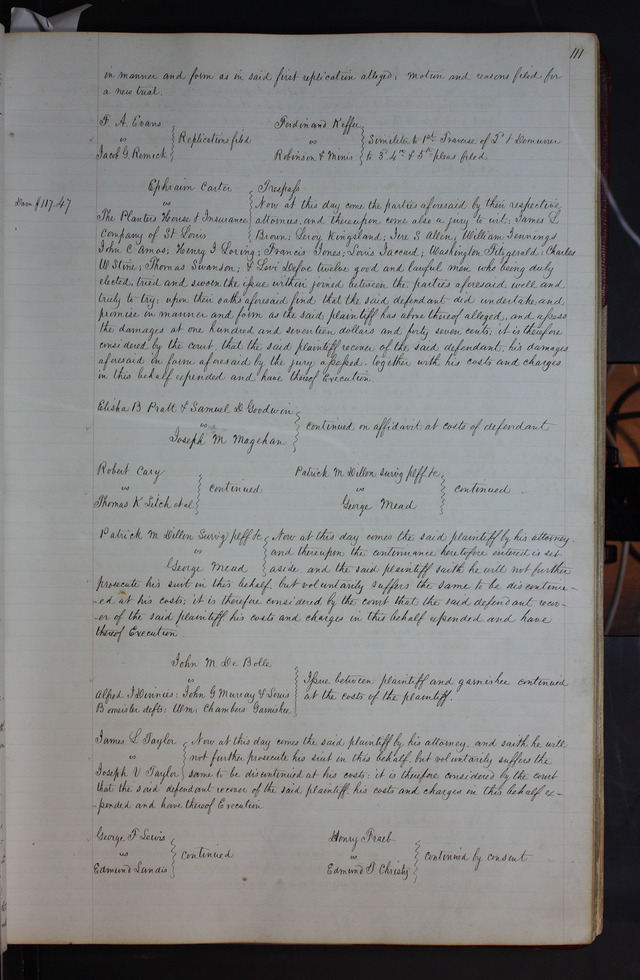 111
in manner and form as in said first replication alleged; motion and reasons filed for
a new trial.
F. A. Evans
vs
Jacob G. Remick
Replications filed
Ferdinand Keffer
vs
Robinson & Minis
Similiter to 1st Traverse of 2d & Demurrer
to 3d 4th & 5th pleas filed
Dam $117.47
Ephraim Carter
vs
The Planters House & Insurance
Company of St Louis
Trespass
Now at this day come the parties aforesaid by their respective
attornies, and thereupon come also a jury to wit; James L
Brown; Leroy Kingsland; Jere S Allen; William Jennings
John C Amos; Henry T Loring; Francis Jones; Louis Jaccard; Washington Fitzgerald; Charles
W Stine; Thomas Swanson; & Levi Defoe twelve good and lawful men who being duly
elected, tried and sworn the issue within joined between the parties aforesaid well and
truly to try; upon their oaths aforesaid find that the said defendant did undertake and
promise in manner and form as the said plaintiff has above thereof alleged, and assess
the damages at one hundred and seventeen dollars and forty seven cents; it is therefore
considered by the court, that the said plaintiff recover of the said defendant, his damages
aforesaid in form aforesaid by the jury assessed, together with his costs and charges
in this behalf expended and have thereof Execution
Elisha B Pratt & Samuel D Goodwin
vs
Joseph M Magehan
continued on affidavit at costs of defendant
Robert Cary
vs
Thomas K et al
continued
Patrick M Dillon survg plff &c
vs
George Mead
continued
Patrick M Dillon Survg plff &c
vs
George Mead
Now at this day comes the said plaintiff by his attorney
and thereupon the continuance heretofore entered is set
aside, and the said plaintiff saith he will not further
prosecute his suit in this behalf but voluntarily suffers the same to be discontinu-
-ed at his costs; it is therefore considered by the court that the said defendant recov-
-er of the said plaintiff his costs and charges in this behalf expended and have
thereof Execution
John M De Bolle
vs
Alfred J ; John G Murray & Louis
defts; Wm. Chambers Garnishee
Issue between plaintiff and garnishee continued
at the costs of the plaintiff.
James L Taylor
vs
Joseph V Taylor
Now at this day comes the said plaintiff by his attorney, and saith he will
not further prosecute his suit in this behalf, but voluntarily suffers the
same to be discontinued at his costs; it is therefore considered by the court
that the said defendant recover of the said plaintiff his costs and charges in this behalf ex-
-pended and have thereof Execution
George F Lewis
vs
Edmund Landis
continued
Henry Traeb
vs
Edmund T Christy
continued by consent